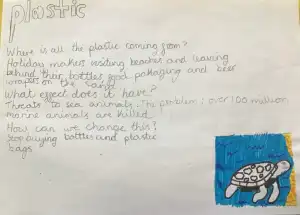 plastic
Where is all the plastic coming from?
Holiday makers visiting beaches and leaving
behind their bottles food packaging and beer
wrapers on the sand
What effect does it have?
Threats to sea animals. The problem: over 100 million
marine animals are killed
How can we change this?
Stop buying bottles and plastic
bags